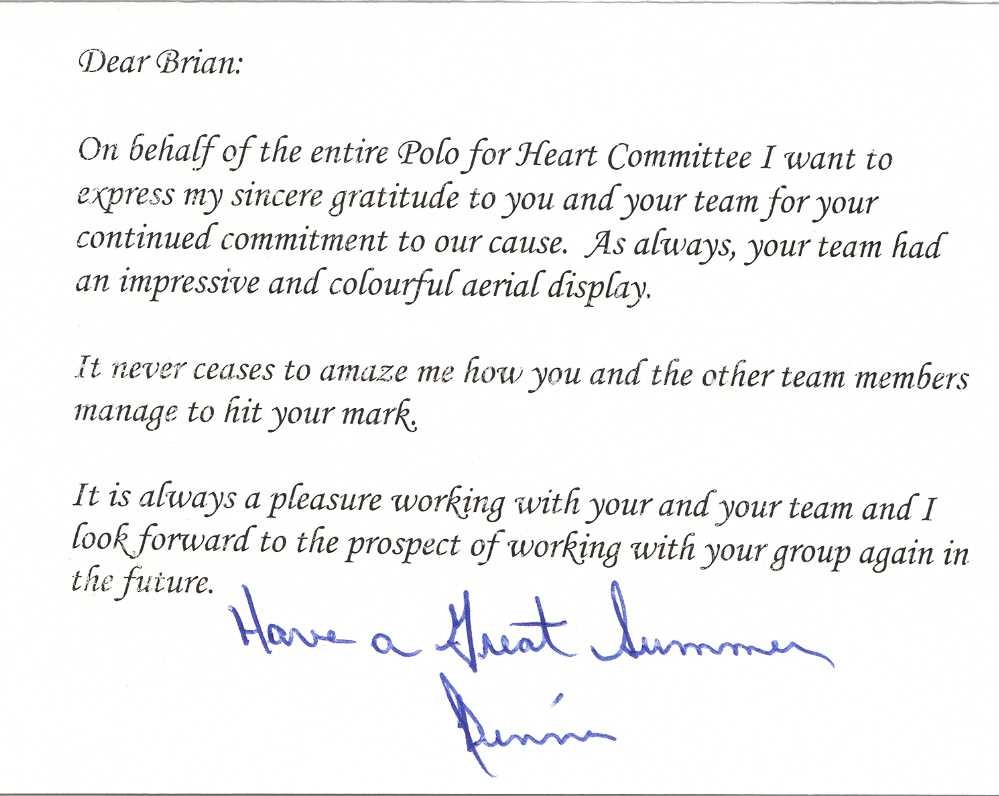 Dear Brian:
On behalf of the entire Polo for Heart Committee I want to
express my sincere gratitude to you and your team for your
continued commitment to our cause. As always, your team had
an impressive and colourful aerial display.
It never ceases to amaze me how you and the other team members
manage to hit your mark.
It is always a pleasure working with your and your team and I
look forward to the prospect of working with your group again in
the future.
Have a Great Summer